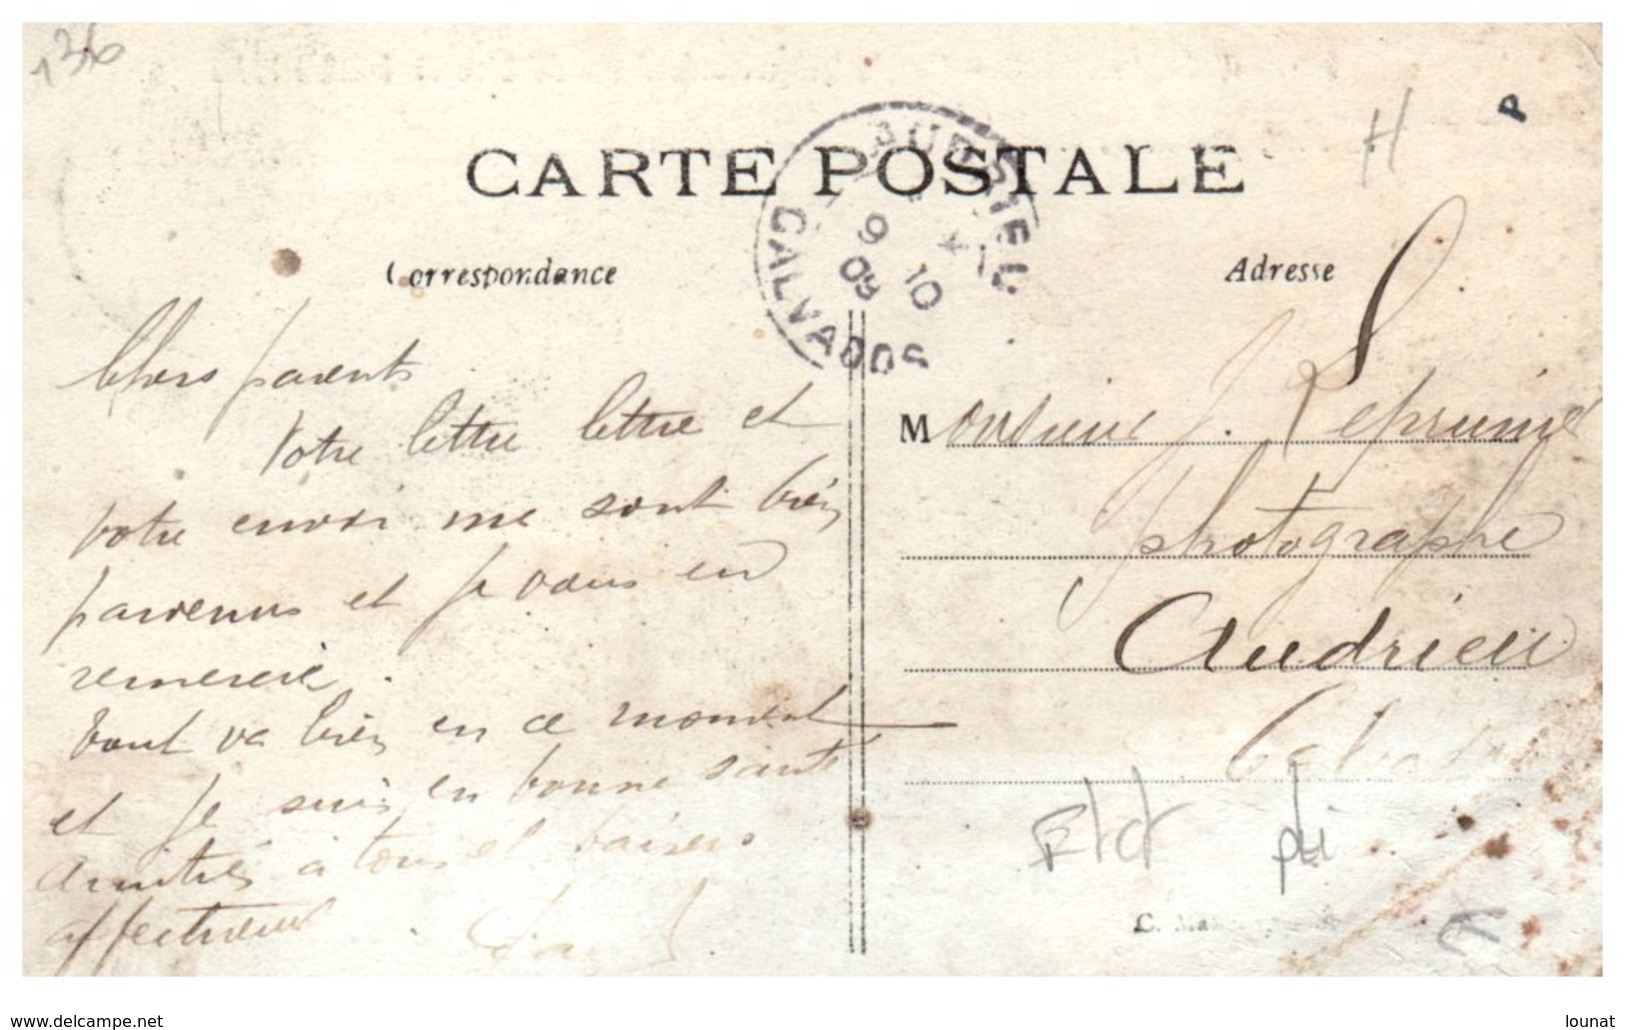 136
H
P
CARTE POSTALE
AUDRIEU
9 10
09
CALVADOS
Correspondance
Adresse
Chers parents
Votre lettre lettre et
votre envoi me sont bien
parvenus et je vous en
remercie.
tout va bien en ce moment
et je suis en bonne santé
amitiés à tous et baisers
affectueux
Monsieur J. Leprunier
photographe
Audrieu
Calvados
Etat pli
www.delcampe.net
lounat